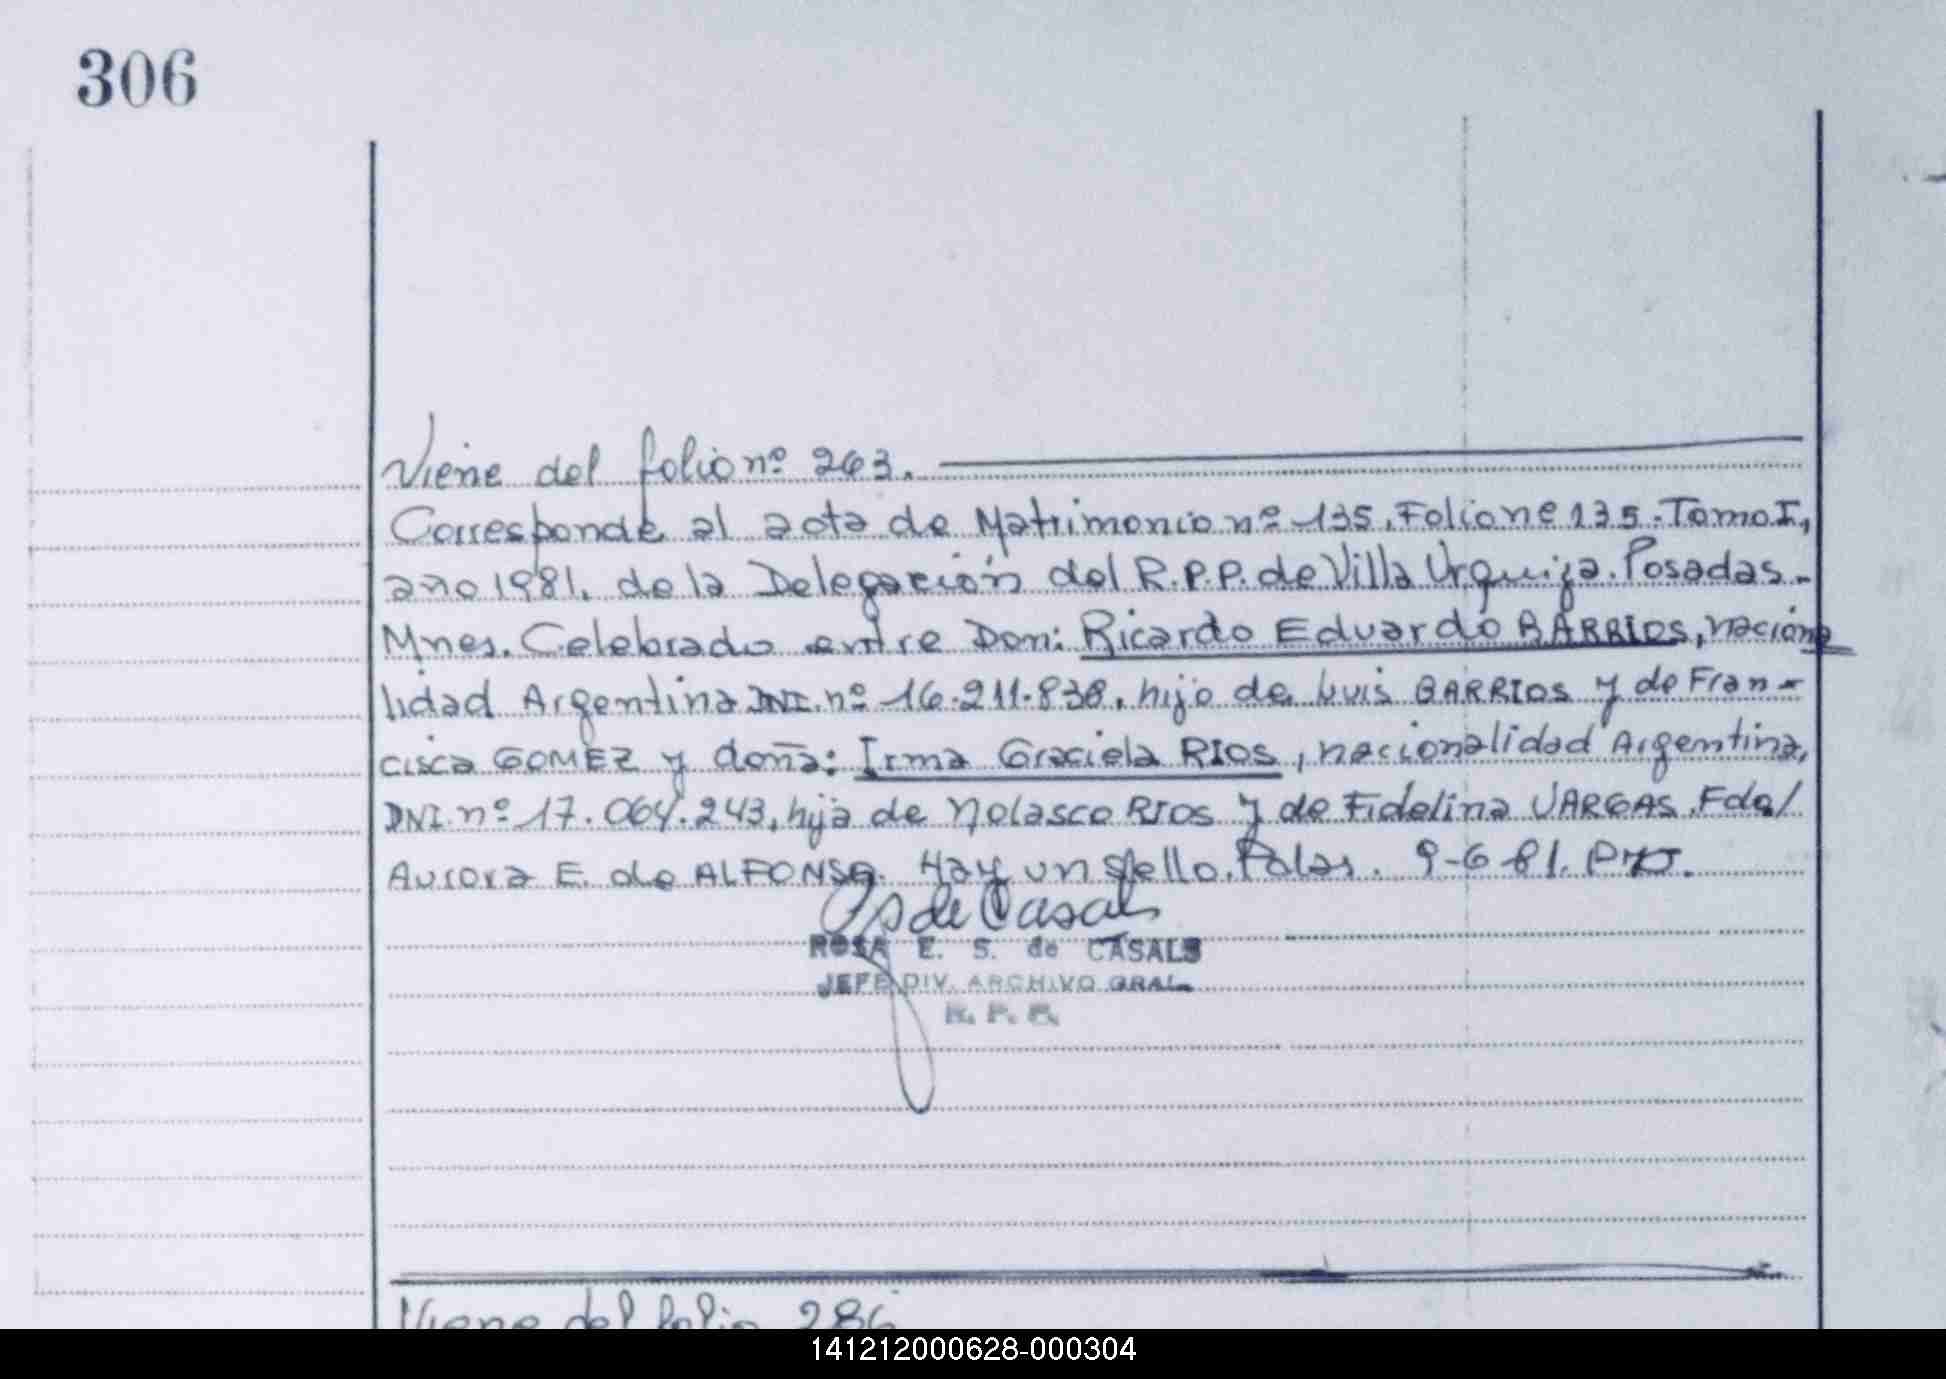 306
Viene del folio nº 263.
Corresponde al acta de Matrimonio nº 135. Folio nº 135. Tomo I,
año 1981. de la Delegación del R.P.P. de Villa Urquiza. Posadas.
Mnes. Celebrado entre Don: Ricardo Eduardo BARRIOS, naciona
lidad Argentina DNI. nº 16.211.838, hijo de Luis BARRIOS y de Fran-
cisca GOMEZ y doña: Irma Graciela RIOS, nacionalidad Argentina,
DNI. nº 17.064.243, hija de Nolasco RIOS y de Fidelina VARGAS. Fdo/
Aurora E. de ALFONSO. Hay un sello. Pdas. 9-6-81.
de Casals
ROSA E. S. de CASALS
JEFE DIV. ARCHIVO GRAL.
R. P. P.
Viene del folio 286
141212000628-000304